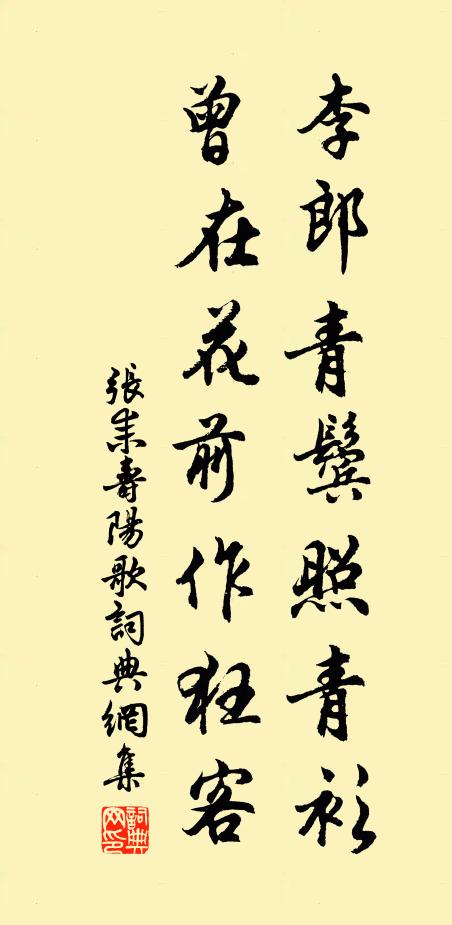 李郎青鬢照青衫
曾在花前作狂客
張耒壽陽歌詞典網集
詞典網印